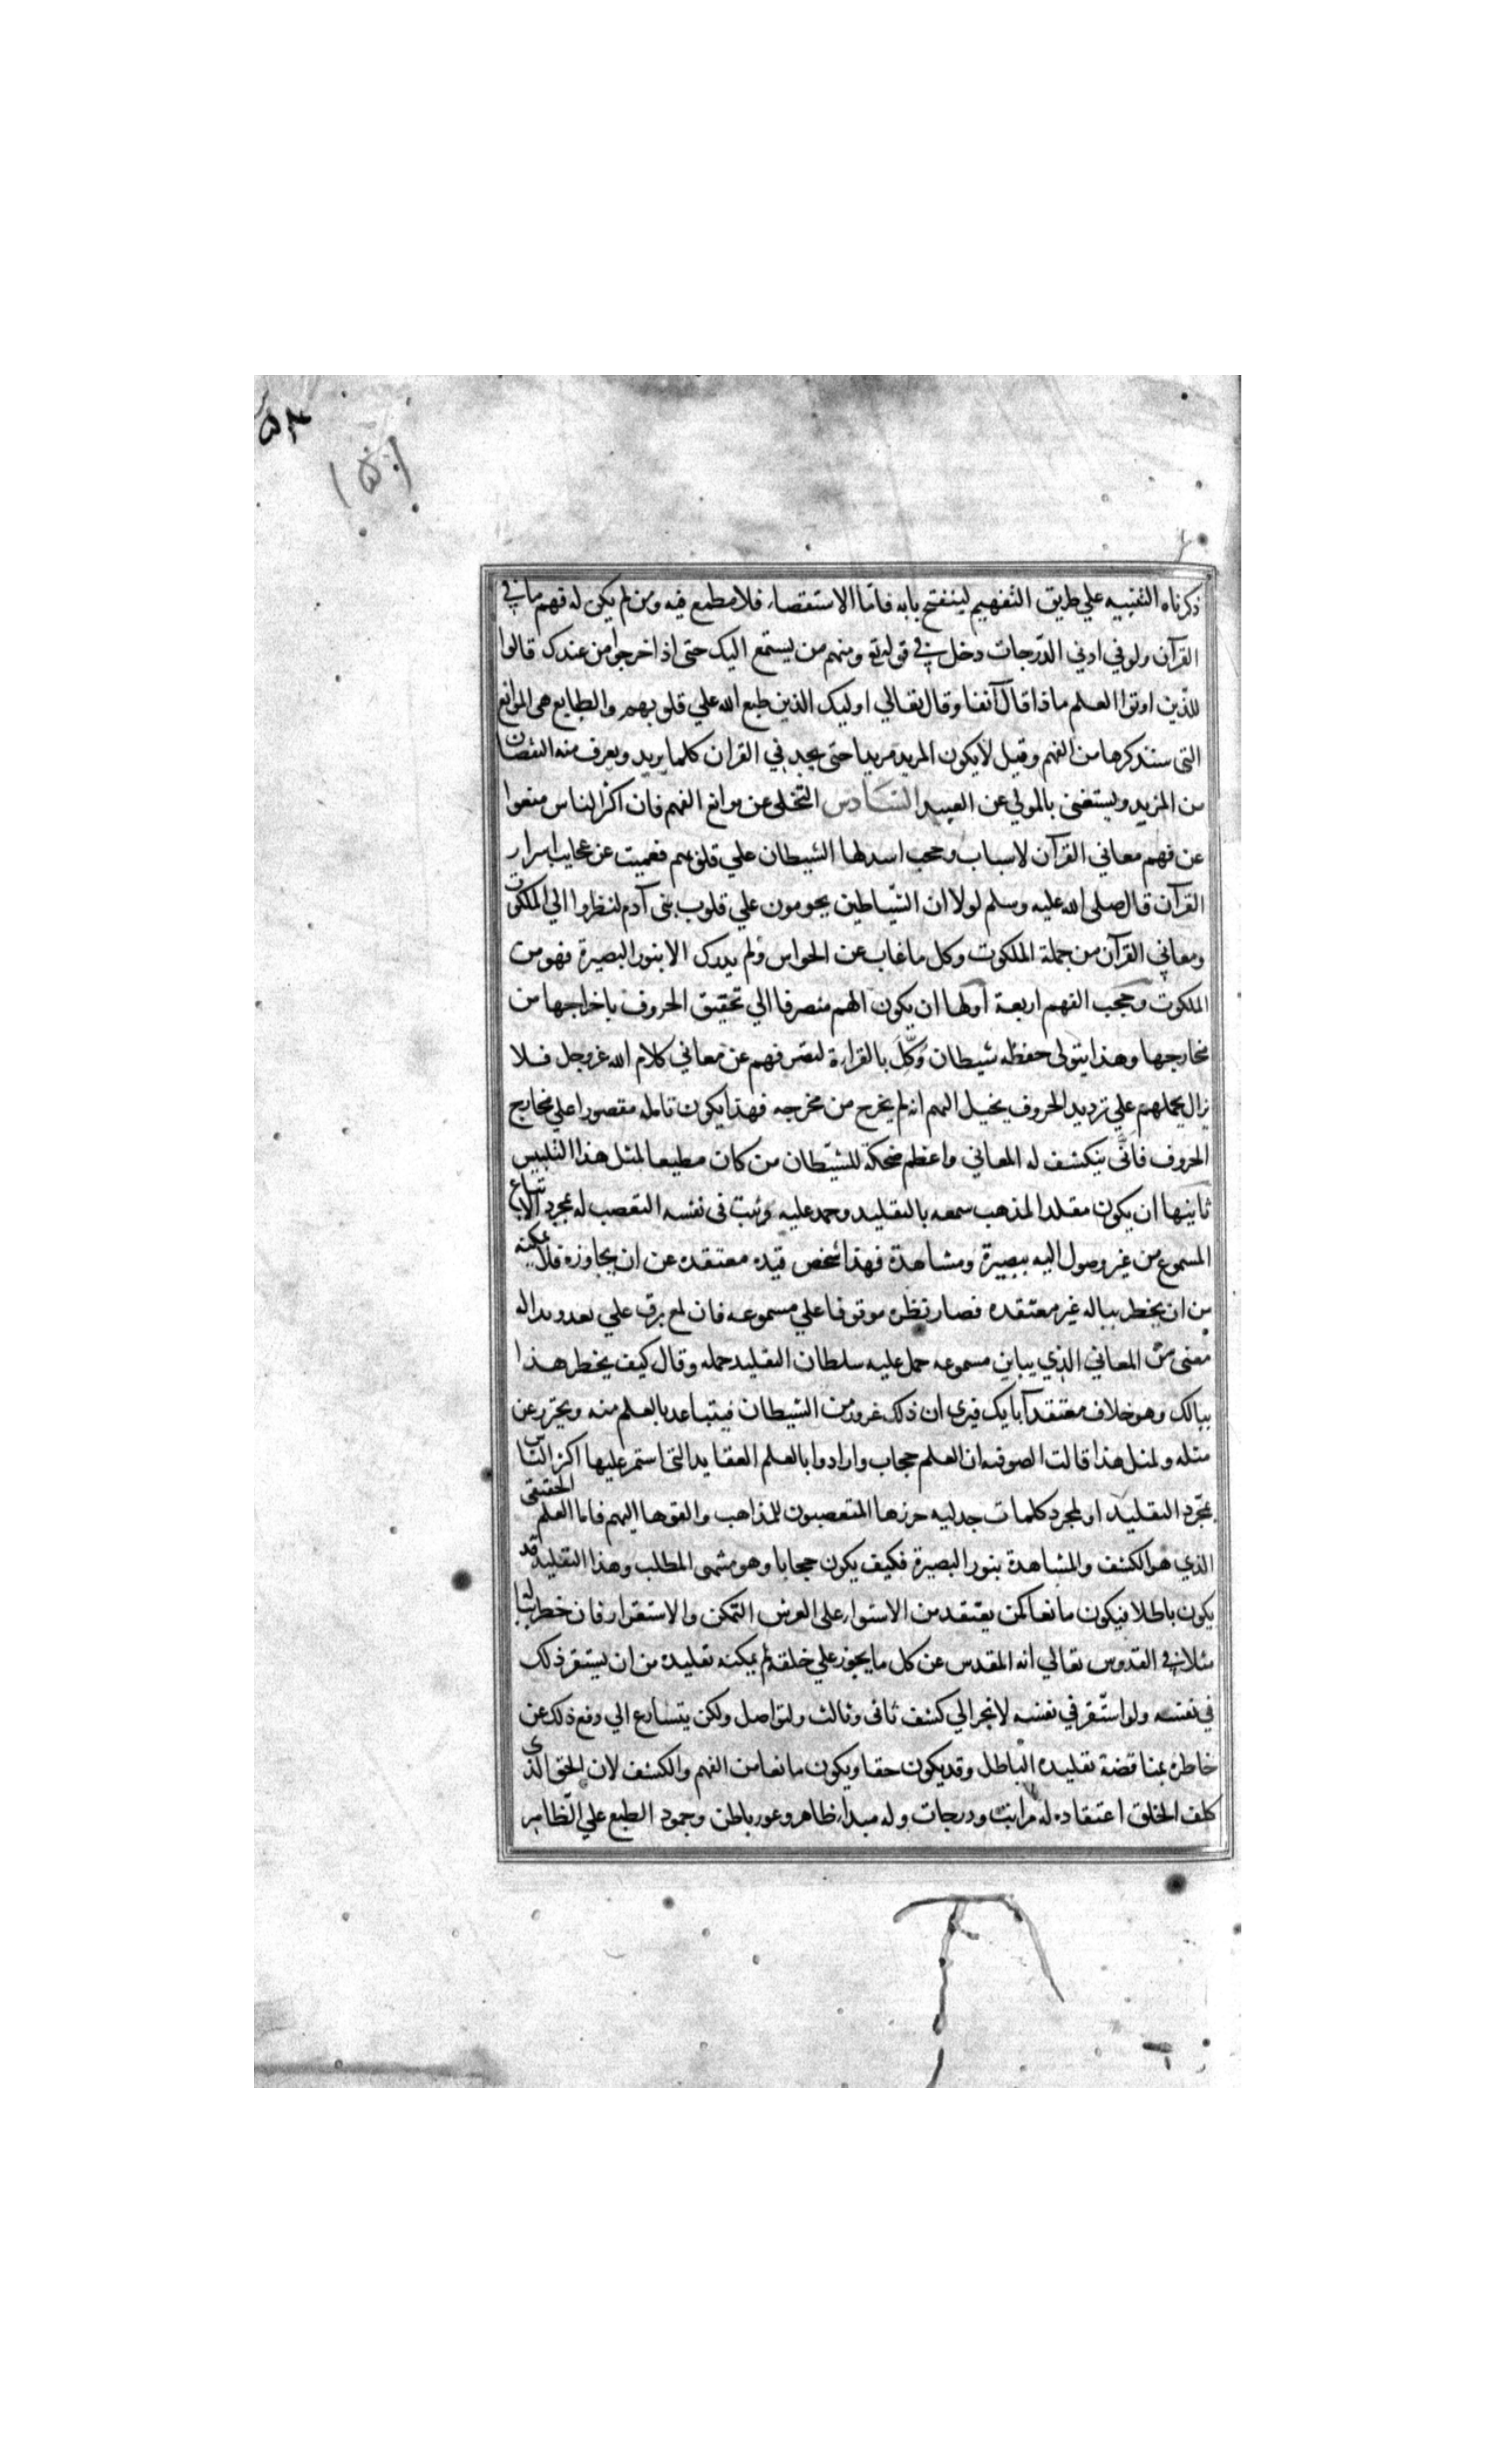 ٥٣
١٥١
ذكرناه التنبيه علي طريق التفهيم لينفتح بابه فاما الاستقصاء فلا مطمع فيه ومن لم يكن له فهم ما في
القرآن ولو في ادني الدرجات دخل في قوله تع ومنهم من يستمع اليك حتى اذا خرجوا من عندك قالوا
للذين اوتوا العلم ماذا قال آنفا وقال تعالي اوليك الذين طبع الله علي قلوبهم والطابع هى الموانع
التى سنذكرها من الفهم وقيل لا يكون المريد مريدا حتى يجد في القران كلما يريد ويعرف منه النقصان
من المزيد ويستغنى بالمولي عن العبيد السادس التخلي عن موانع الفهم فان اكثر الناس منعوا
عن فهم معاني القرآن لاسباب وحجب اسدلها الشيطان علي قلوبهم فعميت عن عجايب اسرار
القرآن قال صلى الله عليه وسلم لولا ان الشياطين يحومون علي قلوب بنى آدم لنظروا الي الملكوت
ومعاني القرآن من جملة الملكوت وكل ما غاب عن الحواس ولم يدرك الا بنور البصيرة فهو من
الملكوت وحجب الفهم اربعة اولها ان يكون الهم منصرفا الي تحقيق الحروف باخراجها من
مخارجها وهذا يتولى حفظه شيطان وُكّل بالقراءة لتصرفهم عن معاني كلام الله عزوجل فلا
يزال يحملهم علي ترديد الحروف يخيل اليهم انه لم يخرج من مخرجه فهذا يكون تامله مقصورا علي مخارج
الحروف فانّى ينكشف له المعاني واعظم ضحكة للشيطان من كان مطيعا لمثل هذا التلبيس
ثانيها ان يكون مقلدا لمذهب سمعه بالتقليد وجمد عليه وثبت فى نفسه التعصب له بمجرد الاتباع
المسموع من غير وصول اليه ببصيرة ومشاهدة فهذا شخص قيده معتقده عن ان يجاوزه فلا يمكنه
من ان يخطر بباله غير معتقده فصار نظره موقوفا علي مسموعه فان لمع برق علي بعد وبدا له
معنى من المعاني الذي يباين مسموعه حمل عليه سلطان التقليد حمله وقال كيف يخطر هذا
ببالك وهو خلاف معتقد آبايك فيرى ان ذلك غرور من الشيطان فيتباعد بالعلم منه ويحترز عن
مثله ولمثل هذا قالت الصوفيه ان العلم حجاب وارادوا بالعلم العقايد التى استمر عليها اكثر الناس
بمجرّد التقليد او لمجرد كلمات جدليه حررها المتعصبون للمذاهب والقوها اليهم فاما العلم الحقيقى
الذي هو الكشف والمشاهدة بنور البصيرة فكيف يكون حجابا وهو منتهى المطلب وهذا التقليد قد
يكون باطلا فيكون مانعا كمن يعتقد من الاستواء على العرش التمكن والاستقرار فان خطر له
مثلا في القدوس تعالي انه المقدس عن كل ما يجوز علي خلقه لم يمكنه تقليده من ان يستقر ذلك
في نفسه ولو استقر في نفسه لانجر الي كشف ثانى وثالث ولتواصل ولكن يتسارع الي دفع ذلك عن
خاطره بمناقضة تقليده الباطل وقد يكون حقا ويكون مانعا من الفهم والكشف لان الحق الذى
كلف الخلق اعتقاده له مراتب ودرجات وله مبداء ظاهر وغور باطن وجمود الطبع علي الظاهر